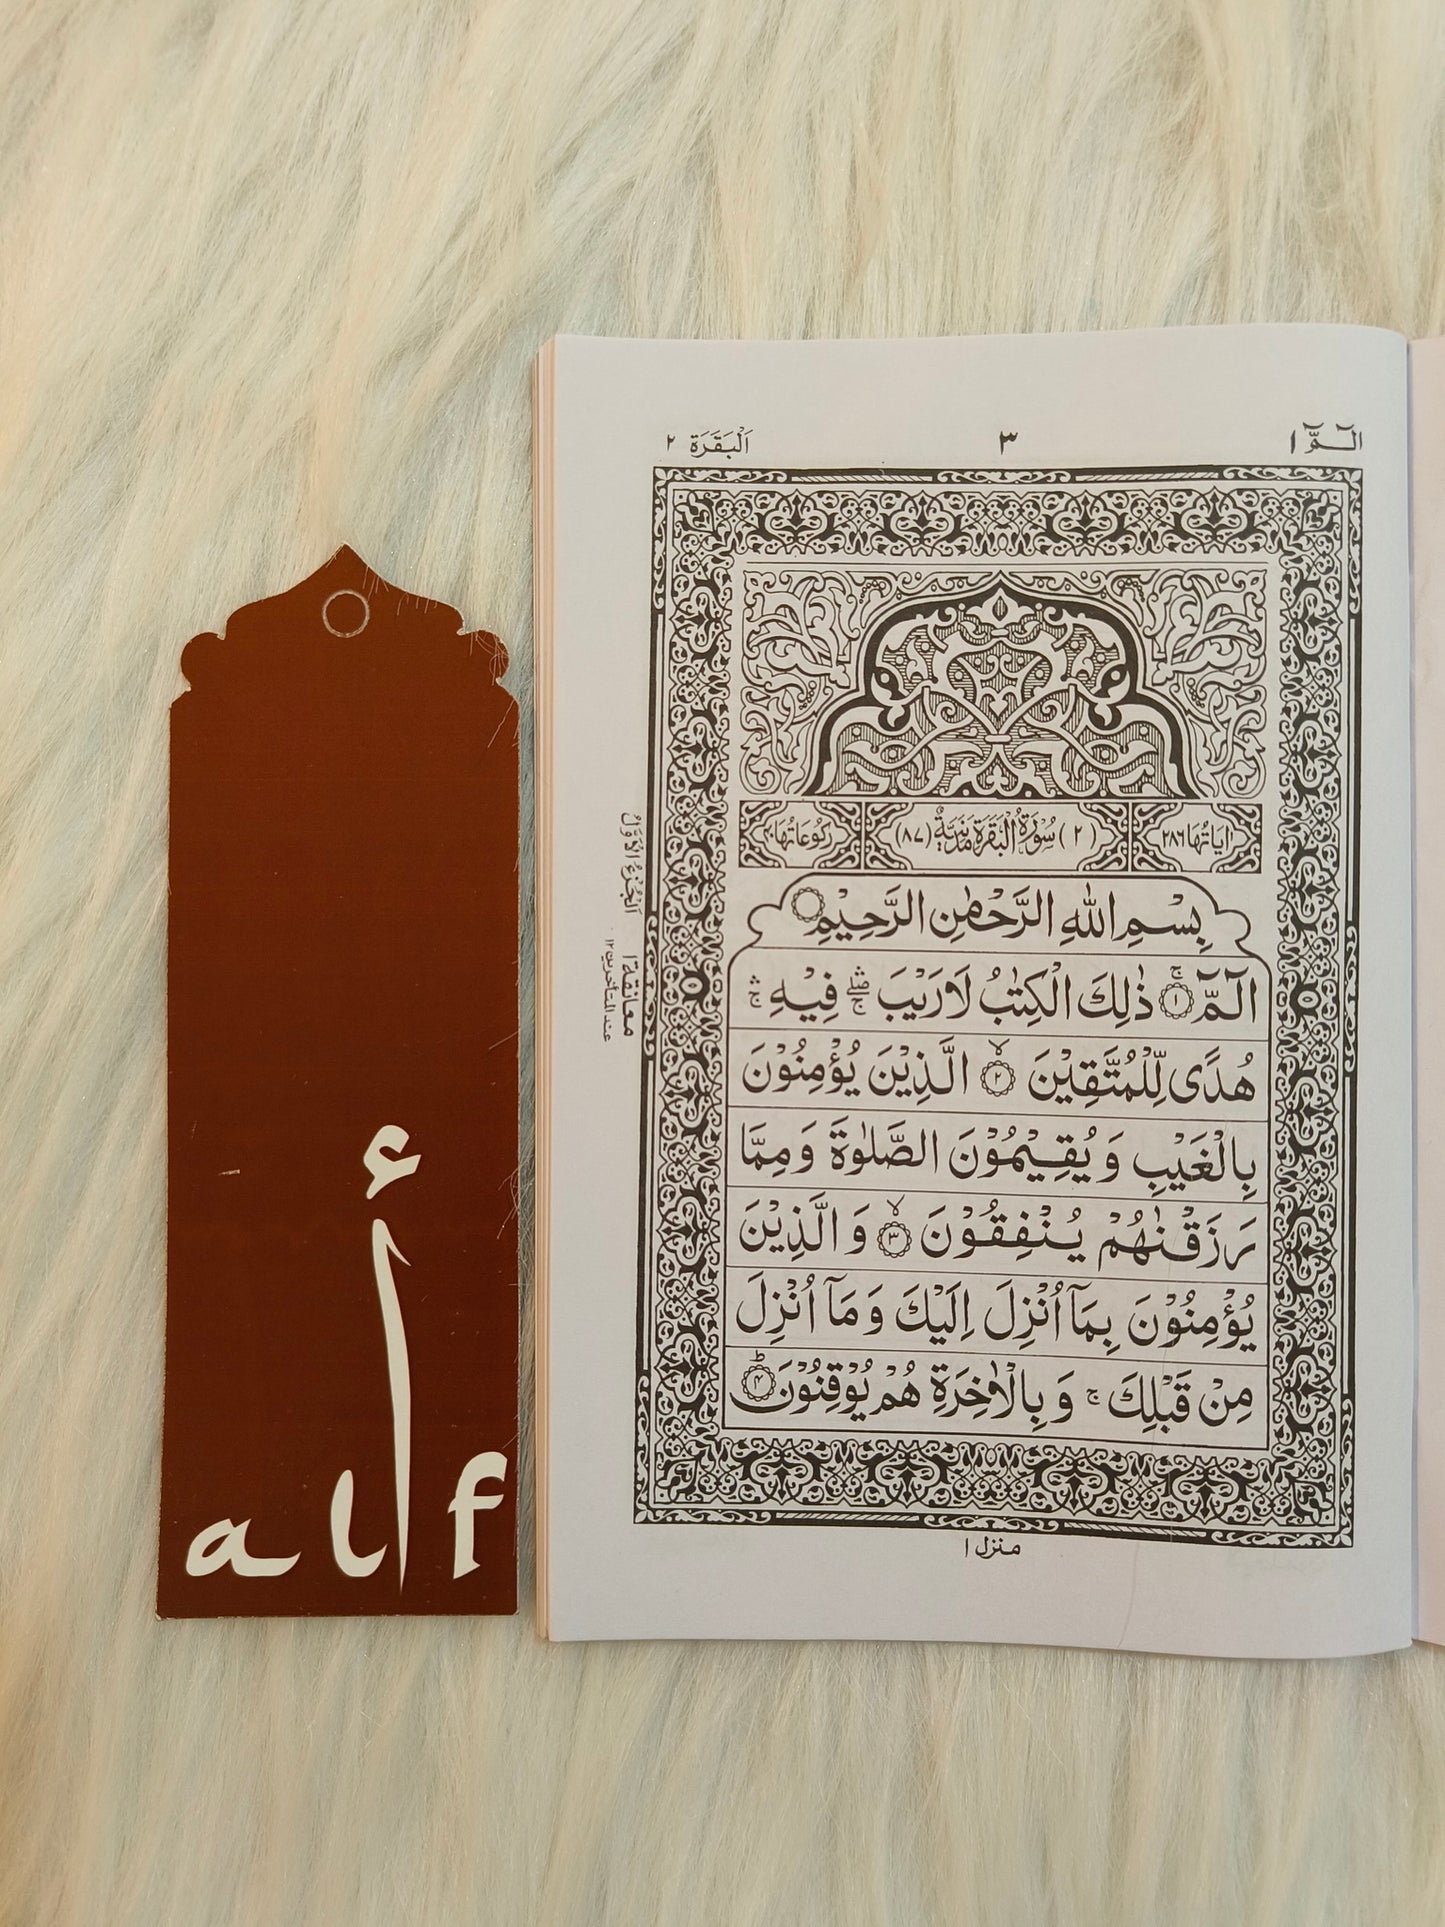 الٓـمّٓ ١
٣
اَلْبَقَرَة ٢
اٰيَاتُهَا ٢٨٦
(٢) سُوْرَةُ الْبَقَرَةِ مَدَنِيَّةٌ (٨٧)
رُكُوْعَاتُهَا ٤٠
بِسْمِ اللّٰهِ الرَّحْمٰنِ الرَّحِيْمِ
الٓـمّٓ ۚ‏ ﴿۱﴾ ذٰلِكَ الْكِتٰبُ لَا رَيْبَ ۛۖۚ فِيْهِ ۛۚ
هُدًى لِّلْمُتَّقِيْنَ ۙ‏ ﴿۲﴾ الَّذِيْنَ يُؤْمِنُوْنَ
بِالْغَيْبِ وَ يُقِيْمُوْنَ الصَّلٰوةَ وَ مِمَّا
رَزَقْنٰهُمْ يُنْفِقُوْنَ ۙ‏ ﴿۳﴾ وَ الَّذِيْنَ
يُؤْمِنُوْنَ بِمَاۤ اُنْزِلَ اِلَيْكَ وَ مَاۤ اُنْزِلَ
مِنْ قَبْلِكَ ۚ وَ بِالْاٰخِرَةِ هُمْ يُوْقِنُوْنَ ؕ‏ ﴿۴﴾
منزل ١
اَلْجُزْءُ الْاَوَّلُ
معانقة ١
عند المتأخرين ١٢
أ
alf